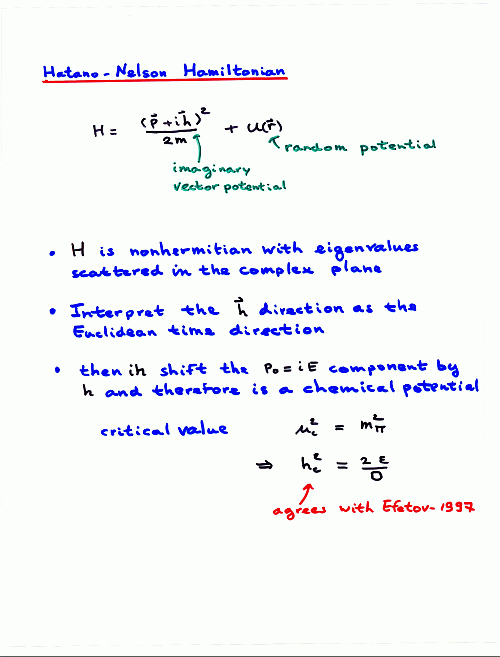 Hatano-Nelson Hamiltonian
H = (p⃗ + ih⃗)² / 2m + U(r⃗)
random potential
imaginary
vector potential
• H is nonhermitian with eigenvalues
scattered in the complex plane
• Interpret the h⃗ direction as the
Euclidean time direction
• then ih shift the P₀ = iE component by
h and therefore is a chemical potential
critical value μ_c² = m_π²
⇒ h_c² = 2E / D
agrees with Efetov-1997